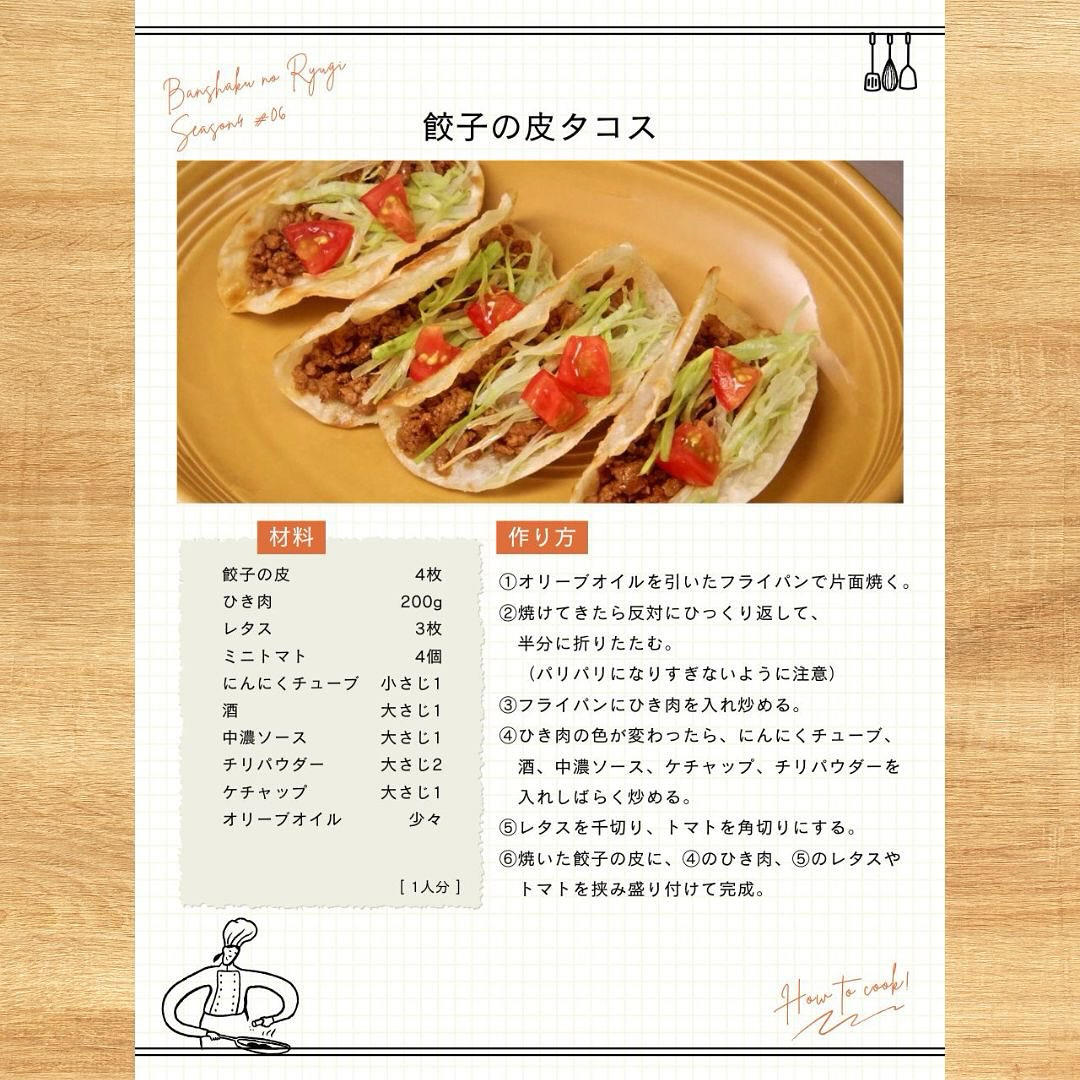 Banshaku no Ryugi
Season4 #06
餃子の皮タコス
材料
餃子の皮 4枚
ひき肉 200g
レタス 3枚
ミニトマト 4個
にんにくチューブ 小さじ1
酒 大さじ1
中濃ソース 大さじ1
チリパウダー 大さじ2
ケチャップ 大さじ1
オリーブオイル 少々
[ 1人分 ]
作り方
①オリーブオイルを引いたフライパンで片面焼く。
②焼けてきたら反対にひっくり返して、
半分に折りたたむ。
（パリパリになりすぎないように注意）
③フライパンにひき肉を入れ炒める。
④ひき肉の色が変わったら、にんにくチューブ、
酒、中濃ソース、ケチャップ、チリパウダーを
入れしばらく炒める。
⑤レタスを千切り、トマトを角切りにする。
⑥焼いた餃子の皮に、④のひき肉、⑤のレタスや
トマトを挟み盛り付けて完成。
How to cook!